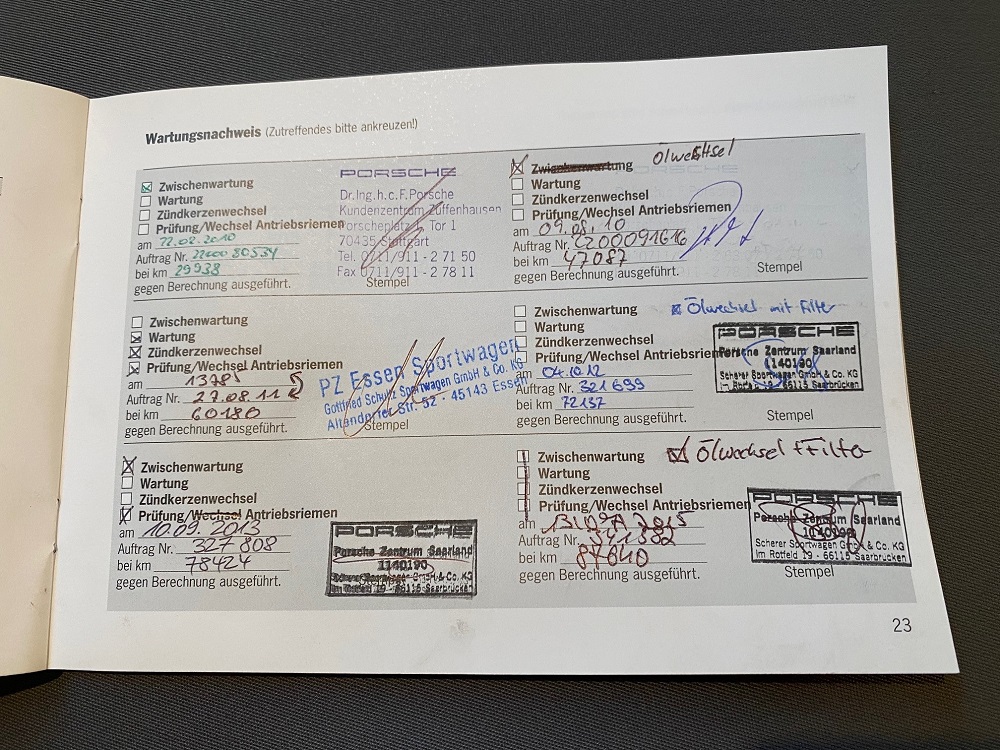 Wartungsnachweis (Zutreffendes bitte ankreuzen!)
Zwischenwartung
Wartung
Zündkerzenwechsel
Prüfung/Wechsel Antriebsriemen
am 22.02.2010
Auftrag Nr. 22000 80534
bei km 29938
gegen Berechnung ausgeführt.
PORSCHE
Dr.Ing.h.c.F.Porsche
Kundenzentrum Zuffenhausen
Porscheplatz 1, Tor 1
70435 Stuttgart
Tel. 0711/911 - 2 71 50
Fax 0711/911 - 2 78 11
Stempel
Zwischenwartung Ölwechsel
Wartung
Zündkerzenwechsel
Prüfung/Wechsel Antriebsriemen
am 09.08.10
Auftrag Nr. C200091616
bei km 47087
gegen Berechnung ausgeführt.
Stempel
Zwischenwartung
Wartung
Zündkerzenwechsel
Prüfung/Wechsel Antriebsriemen
am 13785
Auftrag Nr. 27.08.11
bei km 60180
gegen Berechnung ausgeführt.
PZ Essen Sportwagen
Gottfried Schultz Sportwagen GmbH & Co. KG
Altendorfer Str. 52 · 45143 Essen
Stempel
Zwischenwartung
Wartung
Zündkerzenwechsel
Prüfung/Wechsel Antriebsriemen
am 04.10.12
Auftrag Nr. 321699
bei km 72137
gegen Berechnung ausgeführt.
Ölwechsel mit Filter
PORSCHE
Porsche Zentrum Saarland
1140190
Scherer Sportwagen GmbH & Co. KG
Im Rotfeld 19 - 66115 Saarbrücken
Stempel
Zwischenwartung
Wartung
Zündkerzenwechsel
Prüfung/Wechsel Antriebsriemen
am 10.09.2013
Auftrag Nr. 327 808
bei km 78424
gegen Berechnung ausgeführt.
PORSCHE
Porsche Zentrum Saarland
1140190
Scherer Sportwagen GmbH & Co. KG
Im Rotfeld 19 - 66115 Saarbrücken
Zwischenwartung
Wartung
Zündkerzenwechsel
Prüfung/Wechsel Antriebsriemen
am 2015
Auftrag Nr. 341382
bei km 87640
gegen Berechnung ausgeführt.
Ölwechsel + Filter
PORSCHE
Porsche Zentrum Saarland
1140190
Scherer Sportwagen GmbH & Co. KG
Im Rotfeld 19 - 66115 Saarbrücken
Stempel
23